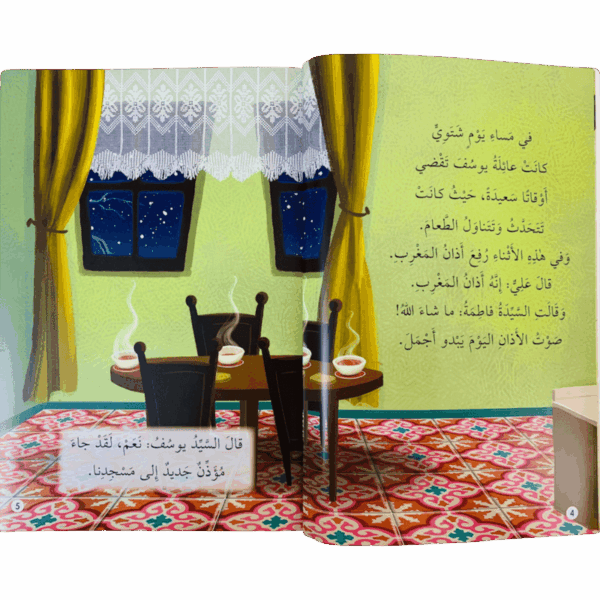 في مَساءِ يَوْمٍ شَتَوِيٍّ
كانَتْ عائِلَةُ يوسُفَ تَقْضي
أَوْقاتًا سَعيدَةً، حَيْثُ كانَتْ
تَتَحَدَّثُ وَتَتَناوَلُ الطَّعامَ.
وَفي هٰذِهِ الأَثْناءِ رُفِعَ أَذانُ المَغْرِبِ.
قالَ عَلِيٌّ: إِنَّهُ أَذانُ المَغْرِبِ.
وَقالَتِ السَّيِّدَةُ فاطِمَةُ: ما شاءَ اللهُ!
صَوْتُ الأَذانِ اليَوْمَ يَبْدو أَجْمَلَ.
4
قالَ السَّيِّدُ يوسُفُ: نَعَمْ، لَقَدْ جاءَ
مُؤَذِّنٌ جَديدٌ إِلى مَسْجِدِنا.
5